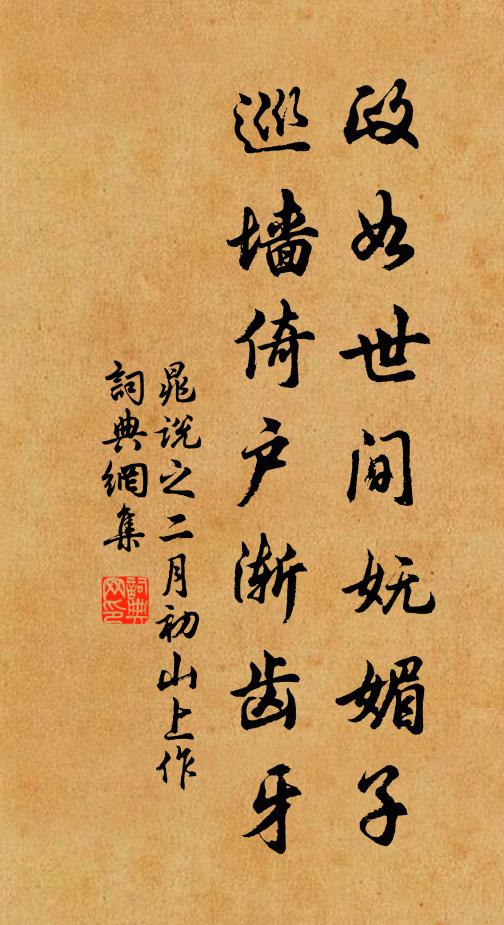 政如世间妩媚子
巡墙倚户渐齿牙
晁说之二月初山上作
詞典網集
詞典网印